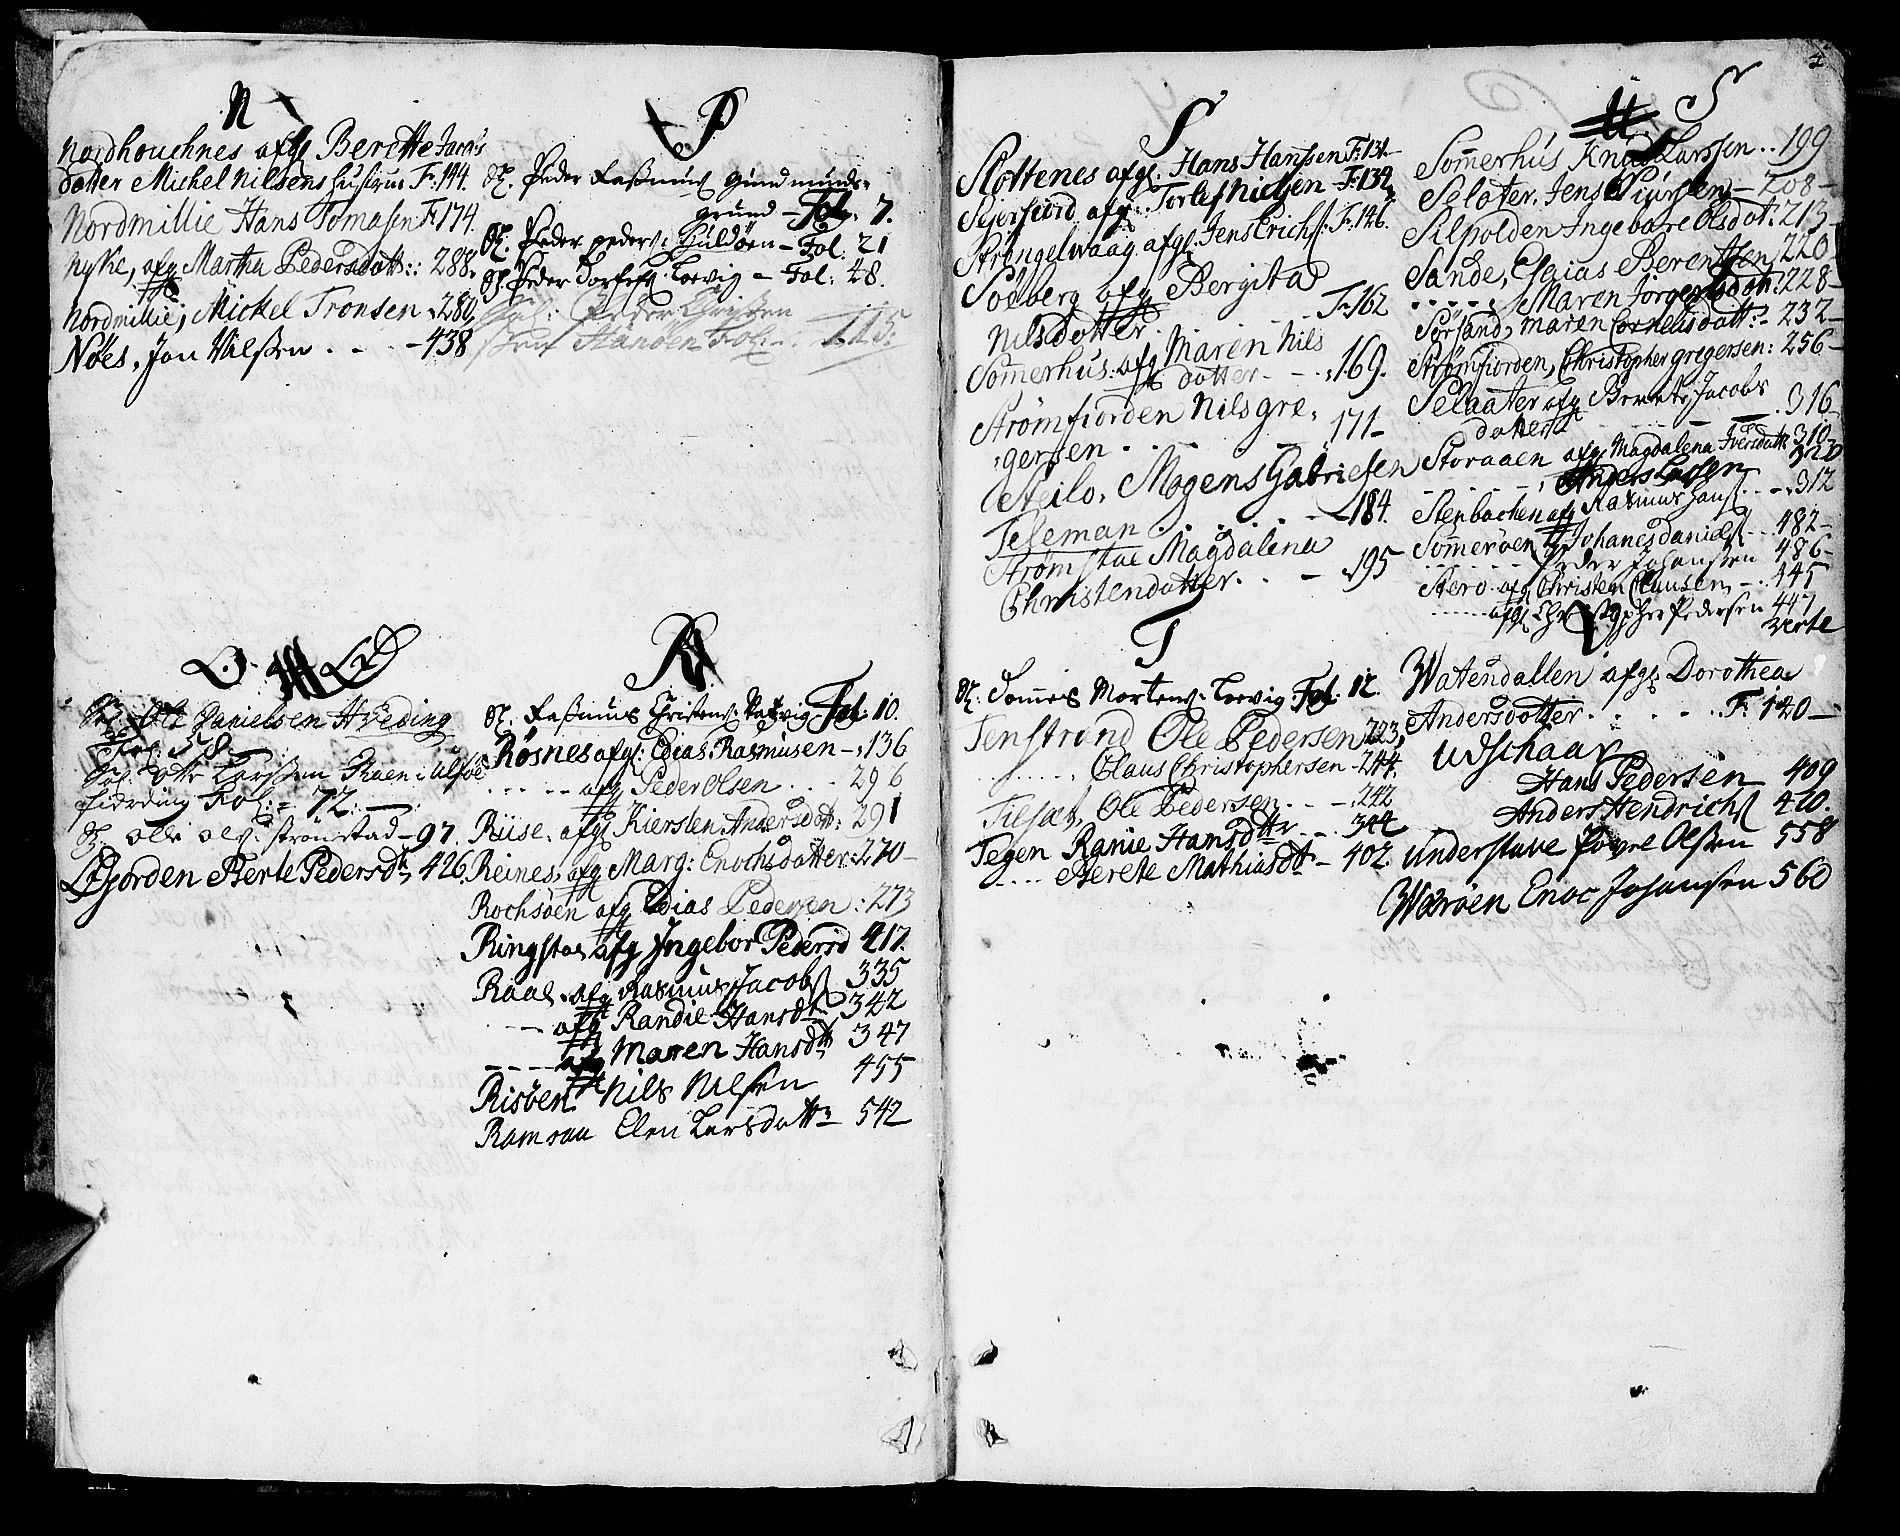 N
Nordhouchnes afg. Berette Jacobs
dotter Michel Nilsens Husterue F. 144.
Nordmillie Hans Tomasen F. 174.
Nyke, afg Martha Pedersdatt: 288.
Nordmillie, Mickel Tronsen, 280,
Nöes, Jon Nilssen . . . - 438
P
Sl. Peder Rasmus Gundmunds-
grund - Fol. 7.
Sl. Peder peders: Huldöen - Fol. 21
Sl. Peder Torlefs. Loevig - Fol: 48.
Sal: Peder Christen
ssen Handen Fol: - . 115.
O
Sl. Ole Danielsen Hveding
Fol. 58.
Sal. Otte Larssen Skaen i Ulfsöe
fierding Fol: = 72: —
Sl. Ole Ols: Strömstad - 97.
Ofjorden Berte Pedersd. 426.
R
Sl. Rasmus Christens: Rasvig Fol: 10.
Rösnes afg: Edias Rasmusen - . 136
. . . . . afg Peder Olsen . . . 296
Riise, afgl Kiersten Andersdott: 291
Reines, afg Marg: Enochsdatter: 270 -
Rochsöen afg Edias Pedersen : 273
Ringstad afg Ingebor Pedersd 417.
Raal, afg Rasmus Jacobs 335
- - afg Randie Hansdtr 342
- - - - afg Maren Hansdtr 347
Risöen Nils Nilsen 455
Ramsaa Elen Larsdottr 542
S
Slottenes afg. Hans Hanssen F. 131 -
Sejersfiord afg: Torlef Nielsen F. 134
Strengelwaag afgl. Jens Erichs. F. 146.
Solberg afg Bergita
Nilsdotter . . . F. 162
Somerhus: afg Maren Nils
dotter - - . 169.
Strömfiorden Nils Gre,
gersen . . . - - 171 -
Steilo, Mogens Gabrielsen
Teleman . . . . . - 184.
Strömstae Magdalena
Christendotter . . - . 195
S
Somerhus Knud Larssen . . 199
Seloter, Jens Siursen - 208 -
Silpolden Ingebore Olsdot: 213 -
Sande, Esaias Berentsen, 220
- - - - - Maren Jorgensdot: 228 -
Sörsand, Maren Cornelisdatt: - 232 -
Strömfiorden, Christopher gregersen: 256 -
Selaater afg Berete Jacobs
dotter - - - - - . 316
Storaaen afg Magdalena Iversdatt 310 -
- - - - - , Anders Larsen
Stenbachen afg Rasmus Hans . . - . 312
Somerøen Johanes Daniels . . . 482 -
- - - - - - Peder Johansen 486 -
Sterö afg Christen Clausen, - . 445
- - - - - afgl Christopher Pedersen 447
verte
T
Sl. Tomes Mortens: Loevig Fol: 12.
Tenstrand Ole Pedersen, 223,
. . . . . . . , Claus Christophersen - 244.
Tilset, Ole Pedersen . . - . 242
Tegen Ranie Hansdttr . . . 344
. . . . Berete Mathiasdtr - 402.
V
Watendallen afgl Dorothea
Andersdotter . . . . . . F. 140 -
Udschaar
Hans Pedersen 409
Anders Hendrichs 410.
Understave Povel Olssen 558
Wæröen Enoc Johansen 560